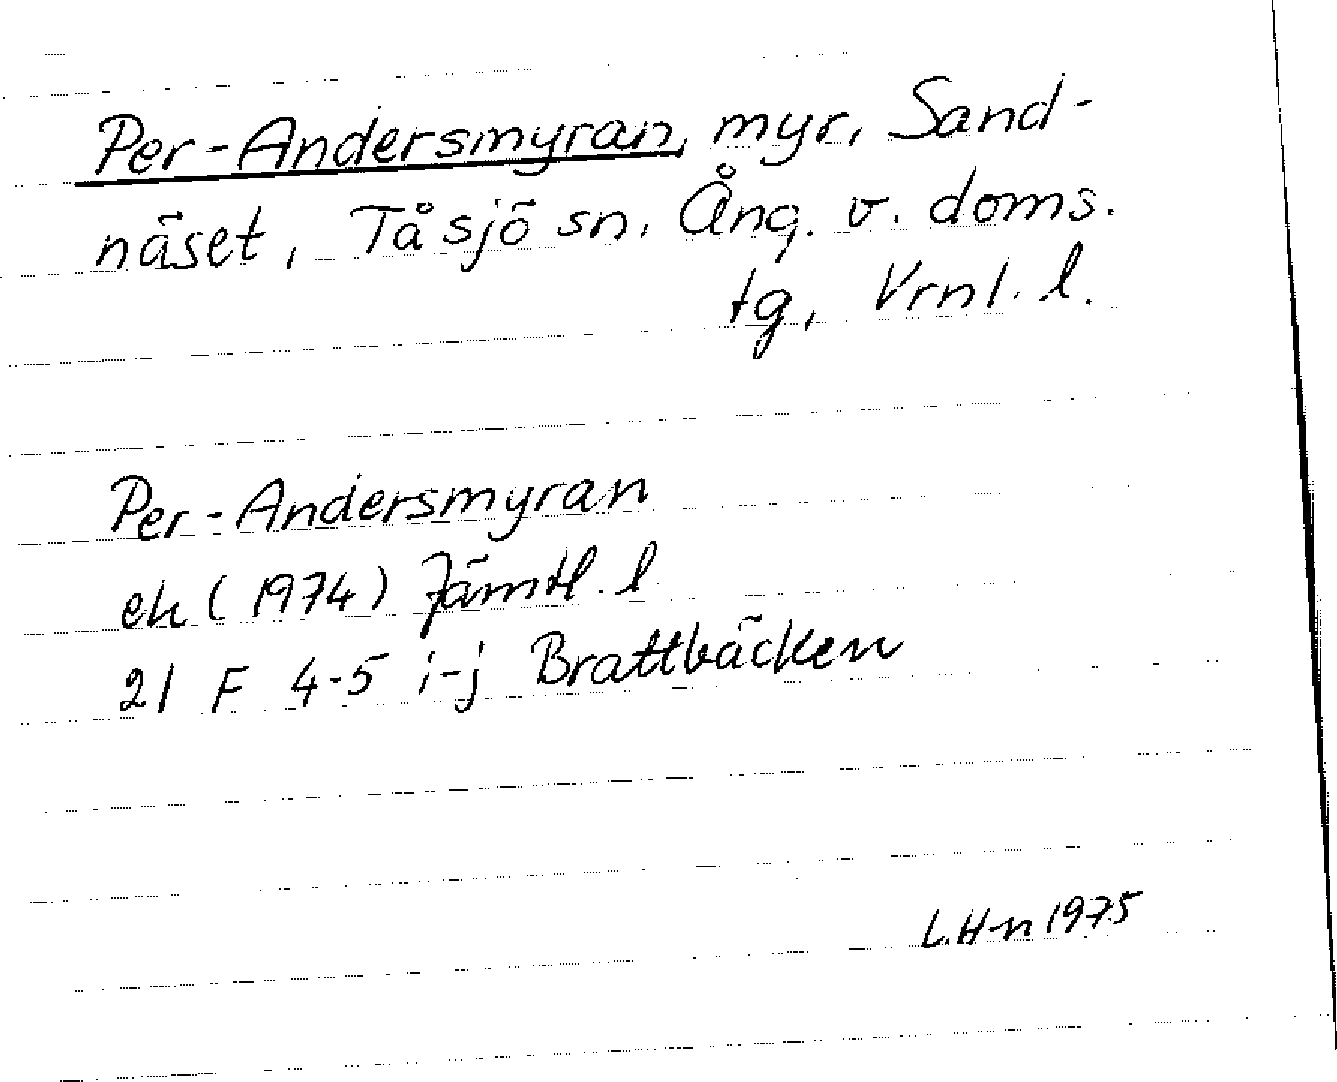 Per-Andersmyran, myr, Sand-
näset, Tåsjö sn, Ång. v. doms.
tg, Vrnl. l.
Per-Andersmyran
ek (1974) Jämtl. l
21 F 4-5 i-j Brattbäcken
L.H-n 1975